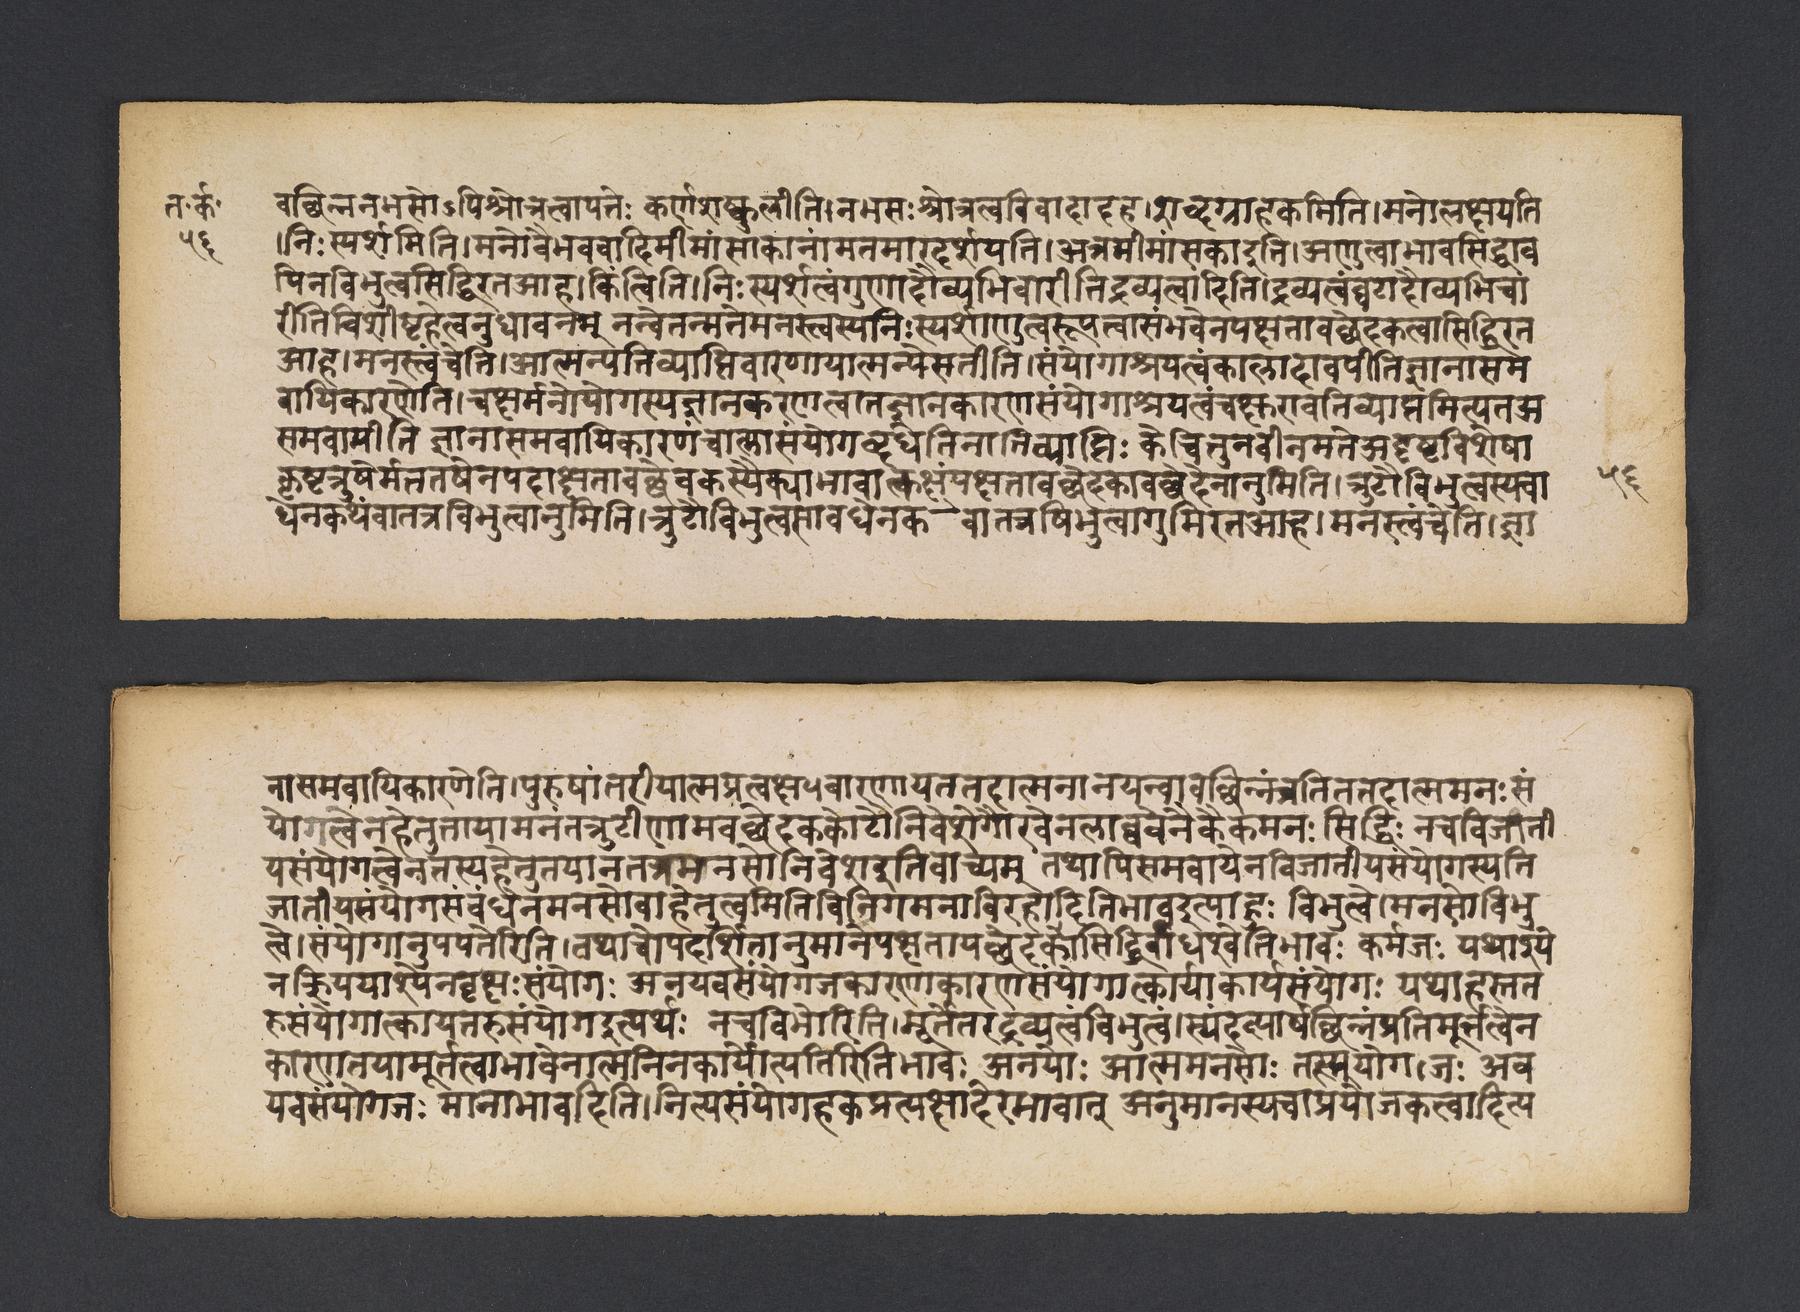 त॰र्क॰
५६
वच्छिन्ननभसोऽपिश्रोत्रत्वापत्तेः कर्णशष्कुलीति।नभसःश्रोत्रत्वविवादादाह।शब्दग्राहकमिति।मनोलक्षयति
।निःस्पर्शमिति।मनोवैभववादिमीमांसाकानांमतमारदर्शयति।अत्रमीमांसकाइति।अणुत्वाभावसिद्धाव
पिनविभुत्वसिद्धिरतआह।किंत्विति।निःस्पर्शत्वंगुणादौव्यभिचारीतिद्रव्यत्वादिति।द्रव्यत्वंघटादौव्यभिचा
रीतिविशिष्टहेत्वनुधावनम् नन्वेतन्मतेमनस्त्वस्यनिःस्पर्शाणुत्वरूपत्वासंभवेनपक्षतावच्छेदकत्वासिद्धिरत
आह।मनस्त्वंचेति।आत्मन्यतिव्याप्तिवारणायात्मन्यसतीति।संयोगाश्रयत्वंकालादावपीतिज्ञानासम
वायिकारणेति।चक्षुर्मनोयोगस्यज्ञानकरणत्वातज्ञानकारणसंयोगाश्रयत्वंचक्षुरावतिव्याप्तमित्यतअ
समवायीति ज्ञानासमवायिकारणंचात्मासंयोगएवेतिनातिव्याप्तिः केचित्तुनवीनमतेअदृष्टविशेषा
कृष्टत्रुषेर्मततषेनपदाक्षतावच्छेवकस्यैक्याभावात्कक्षंपक्षतावच्छेदकावच्छेदेनानुमिति।त्रुटौविभुत्वस्यबा
धेनकथंवातत्रविभुत्वानुमिति।त्रुटौविभुत्वसाबधेनक वातत्रषिभुत्वागुमिरतआह।मनस्त्वंचेति।ज्ञा
५६
नासमवायिकारणेति।पुरुषांतरीयात्मप्रत्वक्षपवारणायतत्तदात्मनानयन्वावच्छिन्नंप्रतितत्तदात्ममनःसं
योगत्वेनहेतुत्तायामनंतत्रुटीणामवच्छेदककोटौनिवेशेगौरवेनलाघवेनैकैकमनः सिद्धिः नचविजाती
यसंयोगत्वेनतस्यहेतुतयानतत्रमनसोनिवेशइतिवाच्यम् तथापिसमवायेनविजातीयसंयोगस्यति
जातीयसंयोगसंबंधेनमनसोवाहेतुत्वमितिवितिगमनाविरहादितिभावइत्याहुः विभुत्वे।मनसोविभु
त्वे।संयोगानुपपत्तेरिति।वथाचोपदर्शितानुमानेपक्षतायच्छेदकासिद्धिर्बाधश्चेतिभावः कर्मजः यथाऽये
नक्रिययाश्येनवृक्षःसंयोगः अनयवसंयोगजकारणकारणसंयोगात्कार्याकार्यसंयोगः यथाहस्तत
रुसंयोगात्कायतरुसंयोगइत्यर्थः नचविभोरिति।मूर्तेतरद्रव्यत्वंविभुत्वं।स्यंदत्वार्षच्छिन्नंप्रतिमूर्तत्वेन
कारणतयामूर्तत्वाभावेनात्मनिनकार्योत्पतिरितिभावः अनयोः आत्ममनसोः तस्मयोग।जः अव
यवसंयोगजः मानाभावदिति।नित्यसंयोगहकप्रत्यक्षादेरभावात् अनुमानस्यचाप्रयोजकत्वादित्य